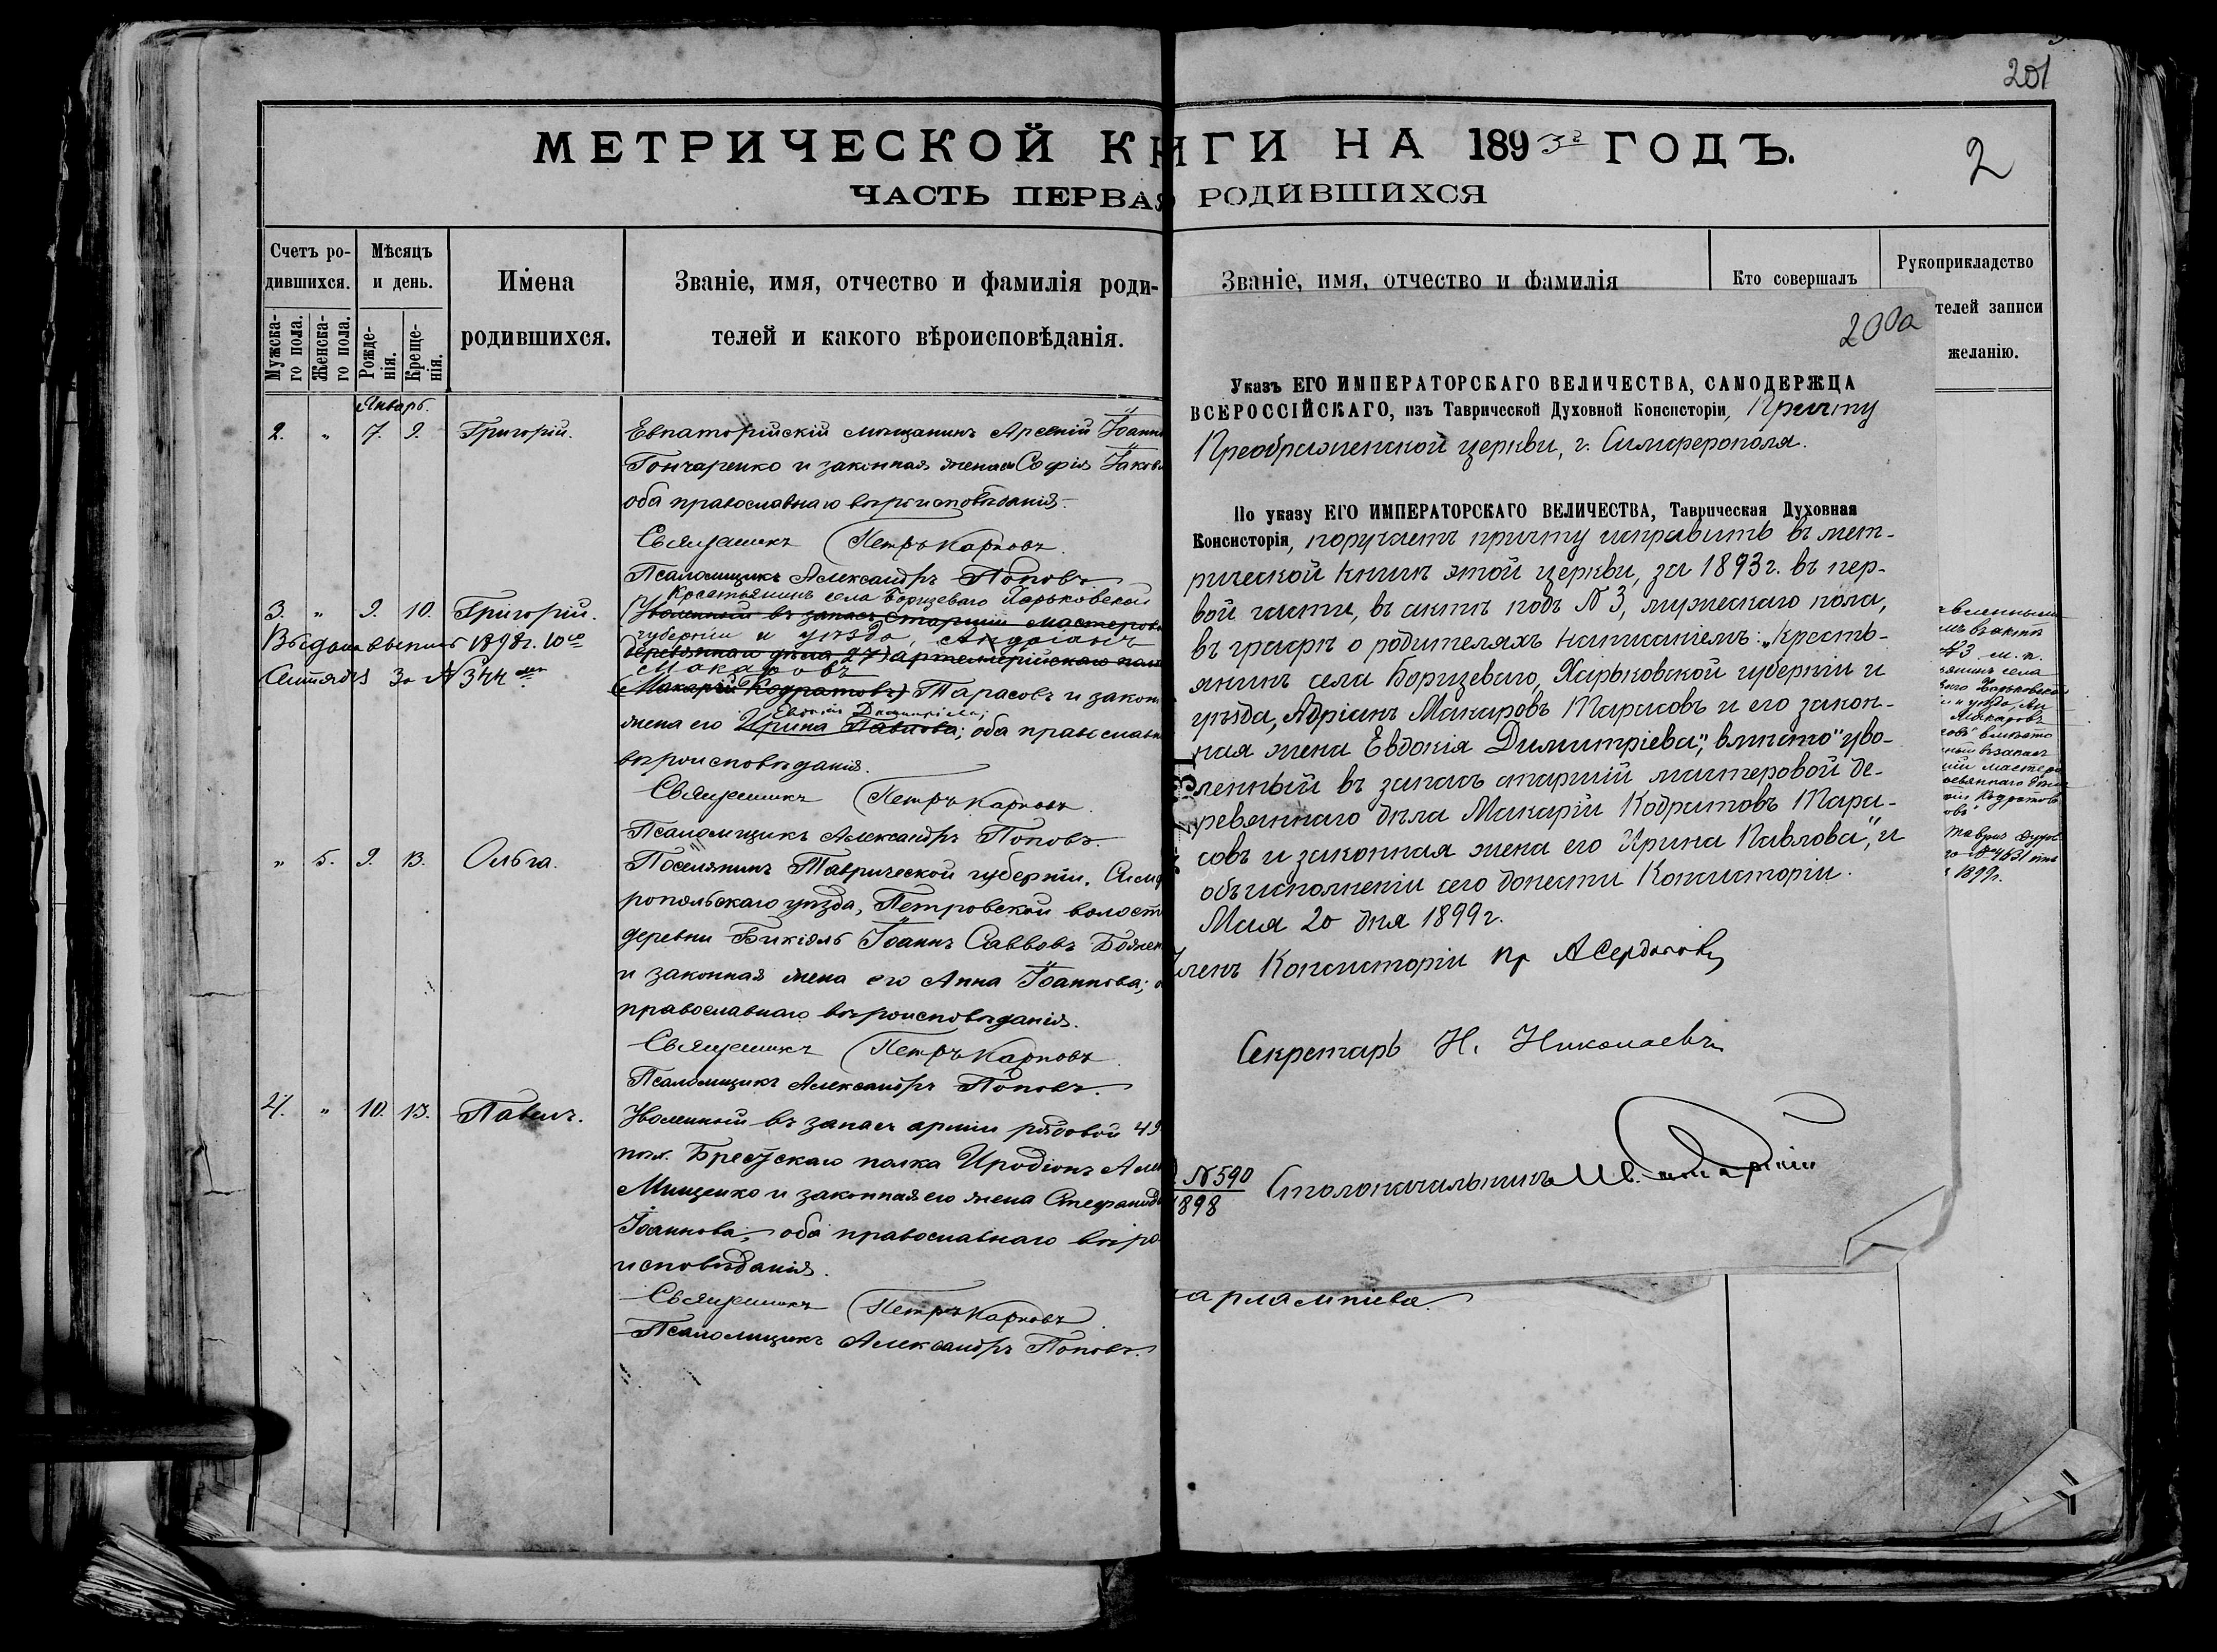 201
МЕТРИЧЕСКОЙ КНИГИ НА 1893й ГОДЪ.
2
ЧАСТЬ ПЕРВАЯ РОДИВШИХСЯ
Счетъ ро-
дившихся.
Мужска-
го пола.
Женска-
го пола.
Мѣсяцъ
и день.
Рожде-
нія.
Креще-
нія.
Имена
родившихся.
Званіе, имя, отчество и фамилія роди-
телей и какого вѣроисповѣданія.
Январь.
2. " 7. 9. Григорій.
Евпаторійскій мѣщанинъ Арсеній Іоанн
Гончаренко и законная жена София Іаков
оба православнаго вѣроисповѣданія.
Священникъ Петръ Карповъ.
Псаломщикъ Александръ Поповъ
3. " 9. 10. Григорій.
Выдана выпись 1898 г. 10го
Сентября За № 344
Крестьянинъ села Борщеваго Харьковской
Уволенный въ запасъ старшій мастеров
губерніи и уѣзда, Андріанъ
деревяннаго дѣла 27 артиллерійскаго пол
Макаровъ
(Макарій Кодратовъ) Тарасовъ и закон
Евдокія Димитріева;
жена его Ирина Павлова; оба православ
вѣроисповѣданія.
Священникъ Петръ Карповъ.
Псаломщикъ Александръ Поповъ.
" 5. 9. 13. Ольга.
Поселянинъ Таврической губерніи, Симф
ропольскаго уѣзда, Петровской волост
деревни Бикіэль Іоаннъ Саввовъ Божен
и законная жена его Анна Іоаннова; о
православнаго вѣроисповѣданія.
Священникъ Петръ Карповъ
Псаломщикъ Александръ Поповъ.
4. " 10. 13. Павелъ.
Уволенный въ запасъ арміи рядовой 49
пѣх. Брестскаго полка Иродіонъ Але
Мищенко и законная его жена Стефанид
Іоаннова; оба православнаго вѣро
исповѣданія.
Священникъ Петръ Карповъ.
Псаломщикъ Александръ Поповъ.
Званіе, имя, отчество и фамилія
Кто совершалъ
Рукоприкладство
телей записи
желанію.
200а
Указъ ЕГО ИМПЕРАТОРСКАГО ВЕЛИЧЕСТВА, САМОДЕРЖЦА
ВСЕРОССІЙСКАГО, изъ Таврической Духовной Консисторіи, Причту
Преображенской церкви, г. Симферополя.
По указу ЕГО ИМПЕРАТОРСКАГО ВЕЛИЧЕСТВА, Таврическая Духовная
Консисторія, поручаетъ причту исправить въ мет-
рической книгѣ этой церкви, за 1893 г. въ пер-
вой части, въ актѣ подъ № 3, мужескаго пола,
въ графѣ о родителяхъ написаніемъ: "кресть-
янинъ села Борщеваго, Харьковской губерніи и
уѣзда, Адріанъ Макаровъ Тарасовъ и его закон-
ная жена Евдокія Димитріева", вмѣсто "уво-
ленный въ запасъ старшій мастеровой де-
ревяннаго дѣла Макарій Кодратовъ Тара-
совъ и законная жена его Ирина Павлова", и
объ исполненіи сего донести Консисторіи.
Мая 20 дня 1899 г.
Членъ Консисторіи пр А Сердобовъ
Секретарь Н. Николаевъ
№ 590
1898
Столоначальникъ
арлампіева.
м. п.
села
Харьковско
уѣзда, Ан
Макаровъ
вмѣсто
въ запасъ
мастеро
Кодратов
4631
1899г.